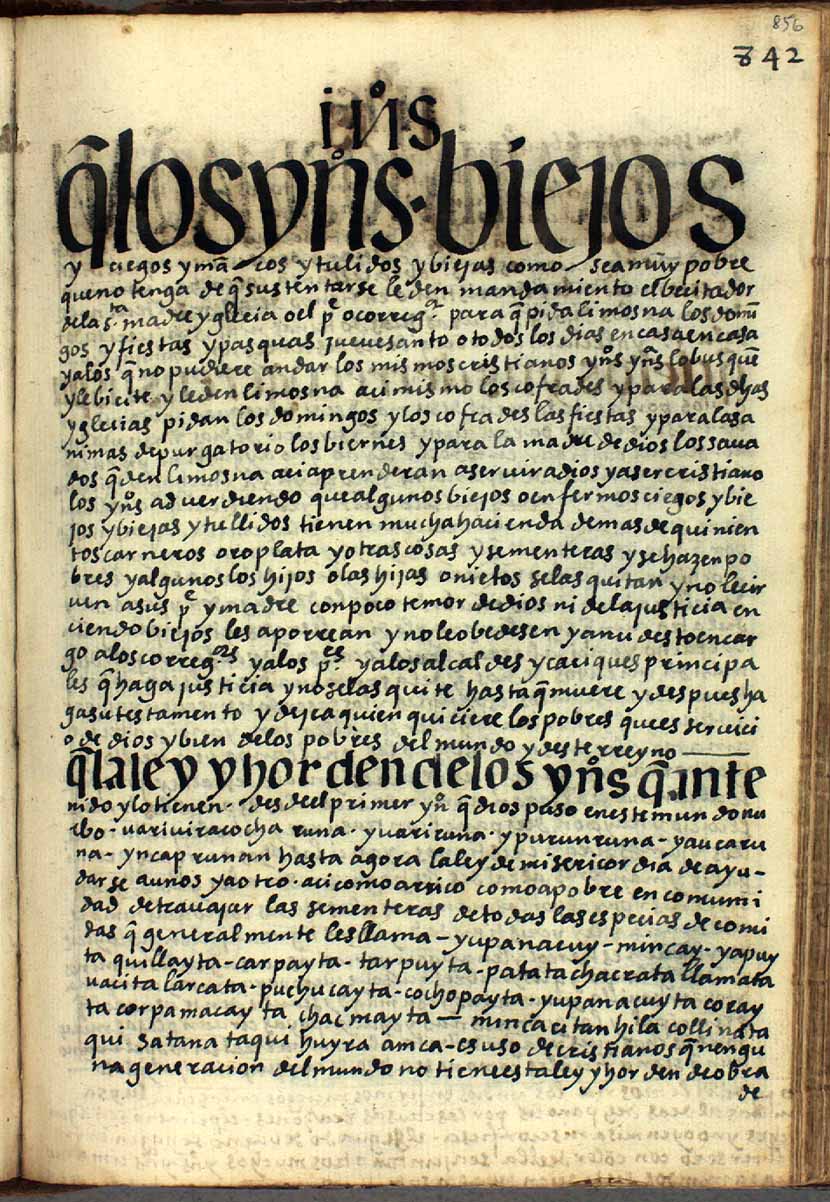 856
842
ynºs
q̃ los ynºs · biejos
y ciegos y mãcos y tulidos y biejas como sea muy pobre
que no tenga de q̃ sustentarse le den mandamiento el becitador
de la s.ta madre yglecia o el p.e o correg.or para q̃ pida limosna los domĩ
gos y fiestas y pasquas jueuesanto o todos los dias en casa en casa
y a los q̃ no pudiere andar los mismos cristianos ynºs ynºs lo busquẽ
y le bicite y le den limosna aci mismo los cofrades y para las dhas
yglecias pidan los domingos y los cofrades las fiestas y para las a
nimas de purgatorio los biernes y para la madre de dios los saua
dos q̃ den limosna aci aprenderan a seruir a dios y a ser cristiano
los ynºs aduerdiendo que algunos biejos o enfermos ciegos y bie
jos y biejas y tullidos tienen mucha hacienda de mas de quinien
tos carneros oro plata y otras cosas y sementeras y se hazen po
bres y algunos los hijos o las hijas o nietos se las quitan y no le cir
uen a sus p.e y madre con poco temor de dios ni de la justicia en
ciendo biejos les aporrean y no le obedesen y anci desto encar
go a los correg.ores y a los p.es y a los alcaldes y caciques principa
les q̃ haga justicia y no se las quite hasta q̃ muere y despues ha
ga su testamento y deja a quien quiciere los pobres que es seruici
o de dios y bien de los pobres del mundo y deste rreyno
q̃ la ley y horden de los ynºs q̃ an te
nido y lo tienen · desde el primer ynº q̃ dios puso en este mundo tu
bo · uari uiracocha runa · y uari runa · y purun runa – y auca ru
na – ynca p runan hasta agora la ley de misericordia de ayu-
darse a unos y a otro · aci como a rrico como a pobre en comuni
dad de trauajar las sementeras de todas las especias de comi
das q̃ generalmente les llama – yupanacuy – mincay · yapuy
ta quillayta – carpayta – tarpuyta – patata chacrata llamata
uacita larcata · puchucayta – cochopayta · yupanacuyta coray
ta corpamacayta chacmayta — mincacitanhila collinata
qui satanataqui huyra amca – es uso de cristianos q̃ nengu
na generacion del mundo no tiene esta ley y horden de obra
de